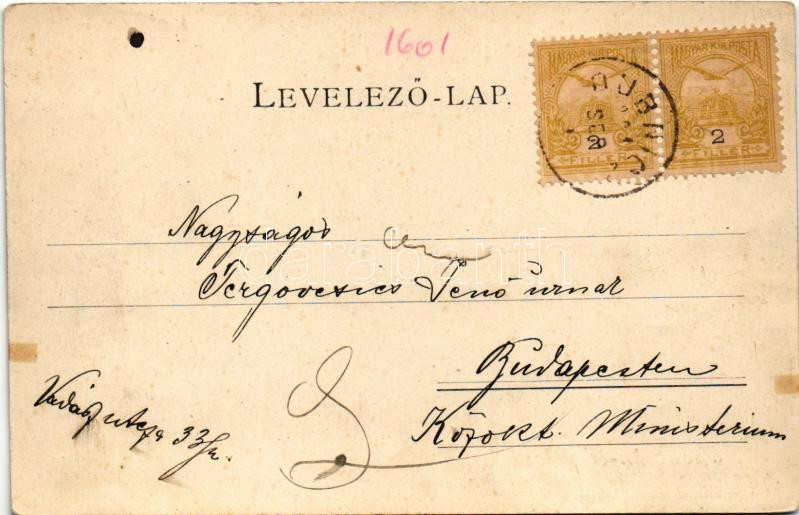 1601
LEVELEZŐ-LAP.
MAGYAR KIR. POSTA
2
FILLÉR
MAGYAR KIR. POSTA
2
FILLÉR
Nagyságos
Tergovcsics Jenő úrnak
Budapesten
Közokt. Ministerium
Vadász utcza 33
darabanth